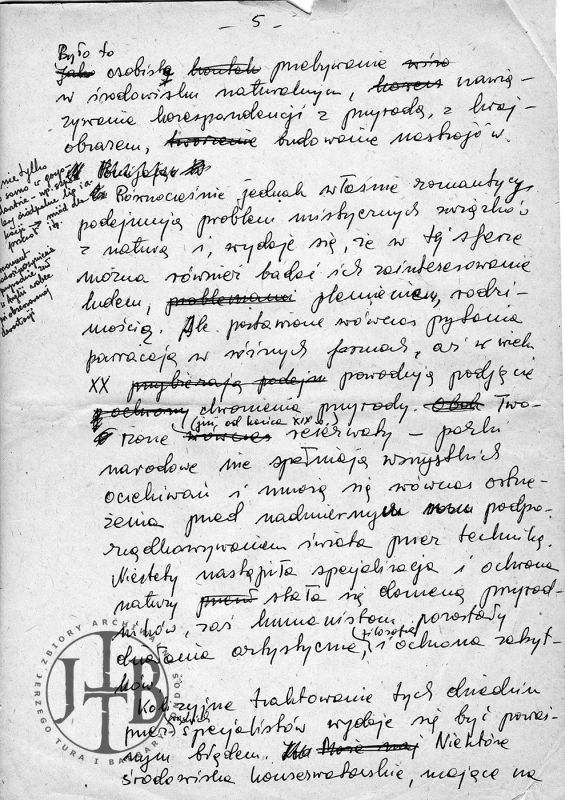 – 5 –
Było to
Jako osobistą kontak przebywanie
w środowisku naturalnym, nawią-
zywanie korespondencji z przyrodą, z kraj-
obrazem, tworzenie budowanie nastrojów.
Równocześnie jednak właśnie romantycy
podejmują problem mistycznych związków
z naturą i, wydaje się, że w tej sferze
można również badać ich zainteresowanie
ludem, problemami plemieniem, rodzi-
mością. Ale postawione wówczas pytania
powracają w różnych formach, aż w wieku
XX przybierają podejm powodują podjęcie
ochrony chronienia przyrody. Obok Two-
(już od końca XIX w.)
rzone wówczas rezerwaty – parki
narodowe nie spełniają wszystkich
oczekiwań i unoszą się wówczas ostrze-
żenia przed nadmiernym podpo-
rządkowywaniem świata przez technikę.
Niestety nastąpiła specjalizacja i ochrona
natury stała się domeną przyrod-
ników, zaś humanistom pozostały
filozofia
działania artystyczne, i ochrona zabyt-
ków.
Kolizyjne traktowanie tych dziedzin
przez specjalistów wydaje się być poważ-
nym błędem. Niektóre
środowiska konserwatorskie, mające na
nie tylko
JERZEGO TURA I BARBARA
ZBIORY ARCHI
JTB